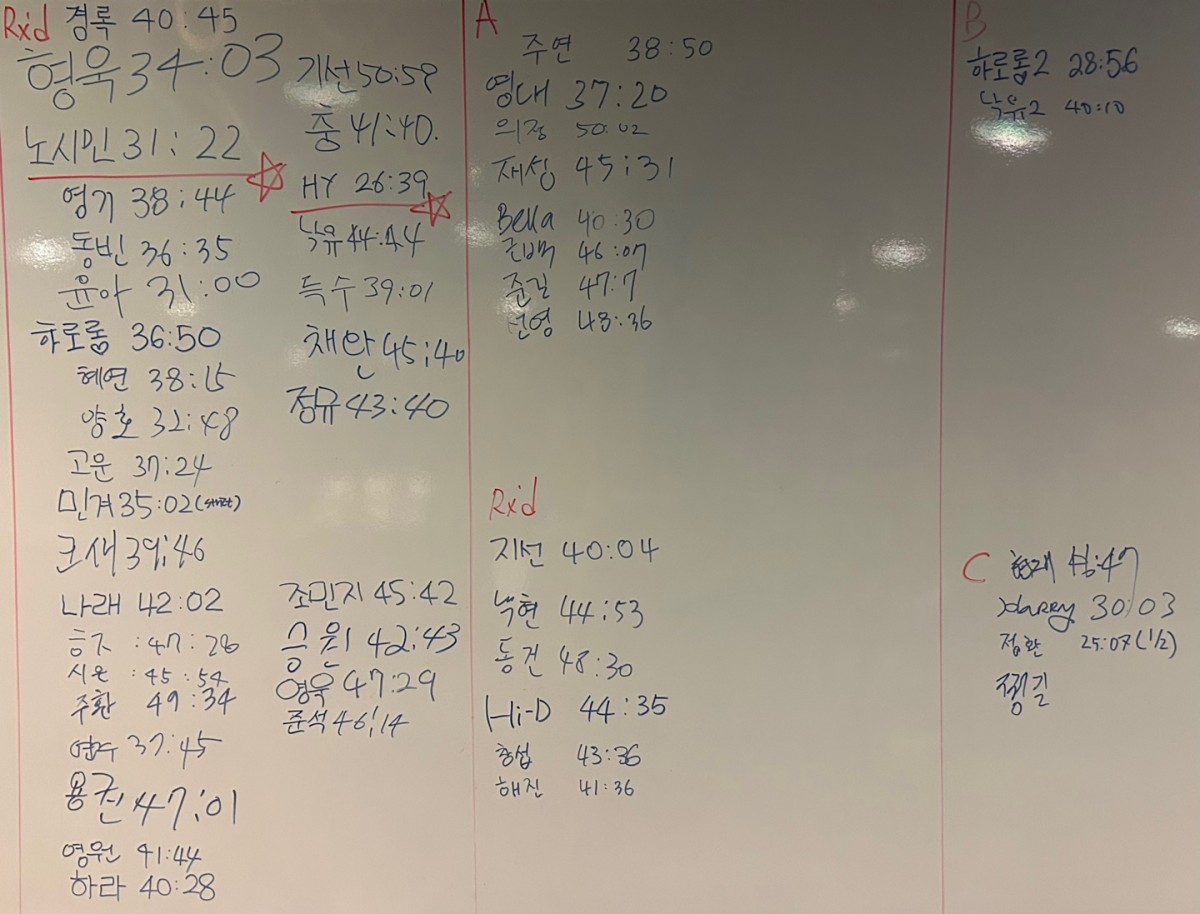 Rxd 경록 40:45
형욱 34:03
노시민 31:22
영기 38:44
동빈 36:35
윤아 31:00
하로롬 36:50
혜연 38:15
양호 32:48
고운 37:24
민겨 35:02
코새 39:46
나래 42:02
:47:28
시온 :45:54
주환 49:34
연수 37:45
용권 47:01
영원 41:44
하라 40:28
기선 50:59
충 41:40.
HY 26:39
낙유 44:44
득수 39:01
채안 45:40
정규 43:40
조민지 45:42
승원 42:43
영욱 47:29
준석 46:14
A
주연 38:50
영대 37:20
의정 50:02
재상 45:31
Bella 40:30
근백 46:07
준길 47:7
선영 48:36
Rx'd
지선 40:04
낙현 44:53
동건 48:30
Hi-D 44:35
충섭 43:36
해진 41:36
B
하로롬2 28:56
낙유2 40:10
C 현래
Harry 30:03
정환 25:07 (1/2)
찡길